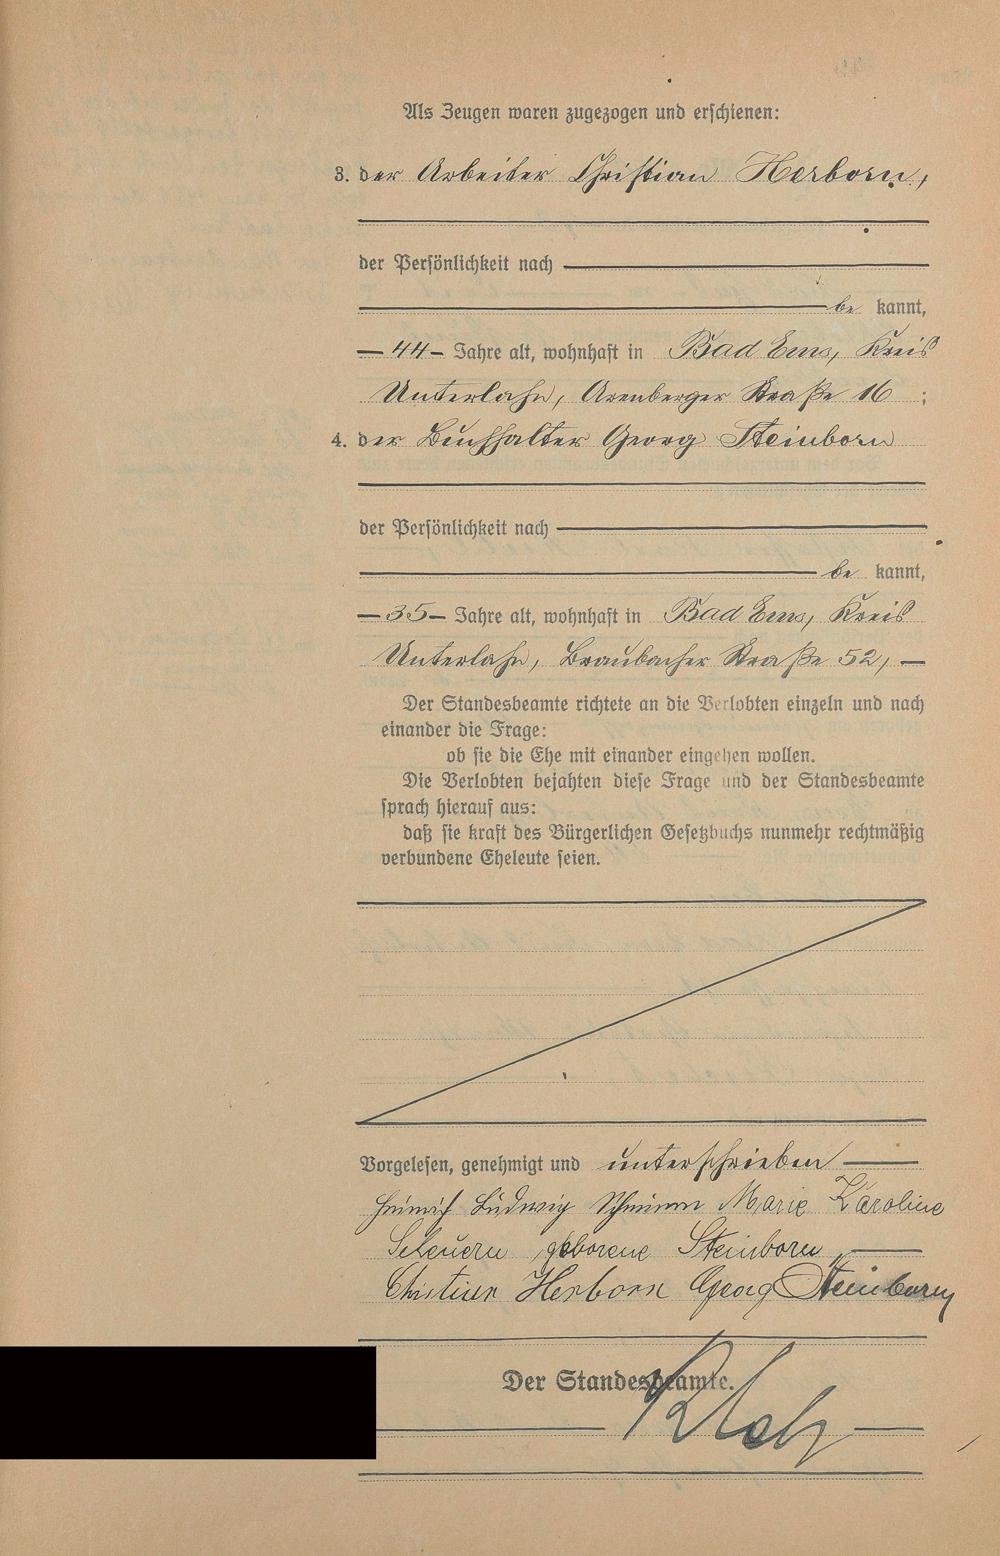 Als Zeugen waren zugezogen und erschienen:
3. der Arbeiter Christian Herborn,
der Persönlichkeit nach
be kannt,
— 44 — Jahre alt, wohnhaft in Bad Ems, Kreis
Unterlahn, Arenberger Straße 16 ;
4. der Buchhalter Georg Steinborn
der Persönlichkeit nach
be kannt,
— 35 — Jahre alt, wohnhaft in Bad Ems, Kreis
Unterlahn, Braubacher Straße 52, —
Der Standesbeamte richtete an die Verlobten einzeln und nach
einander die Frage:
ob sie die Ehe mit einander eingehen wollen.
Die Verlobten bejahten diese Frage und der Standesbeamte
sprach hierauf aus:
daß sie kraft des Bürgerlichen Gesetzbuchs nunmehr rechtmäßig
verbundene Eheleute seien.
Vorgelesen, genehmigt und unterschrieben —
Heinrich Ludwig Marie Karoline
geborene Steinborn, —
Christian Herborn Georg Steinborn
Der Standesbeamte.